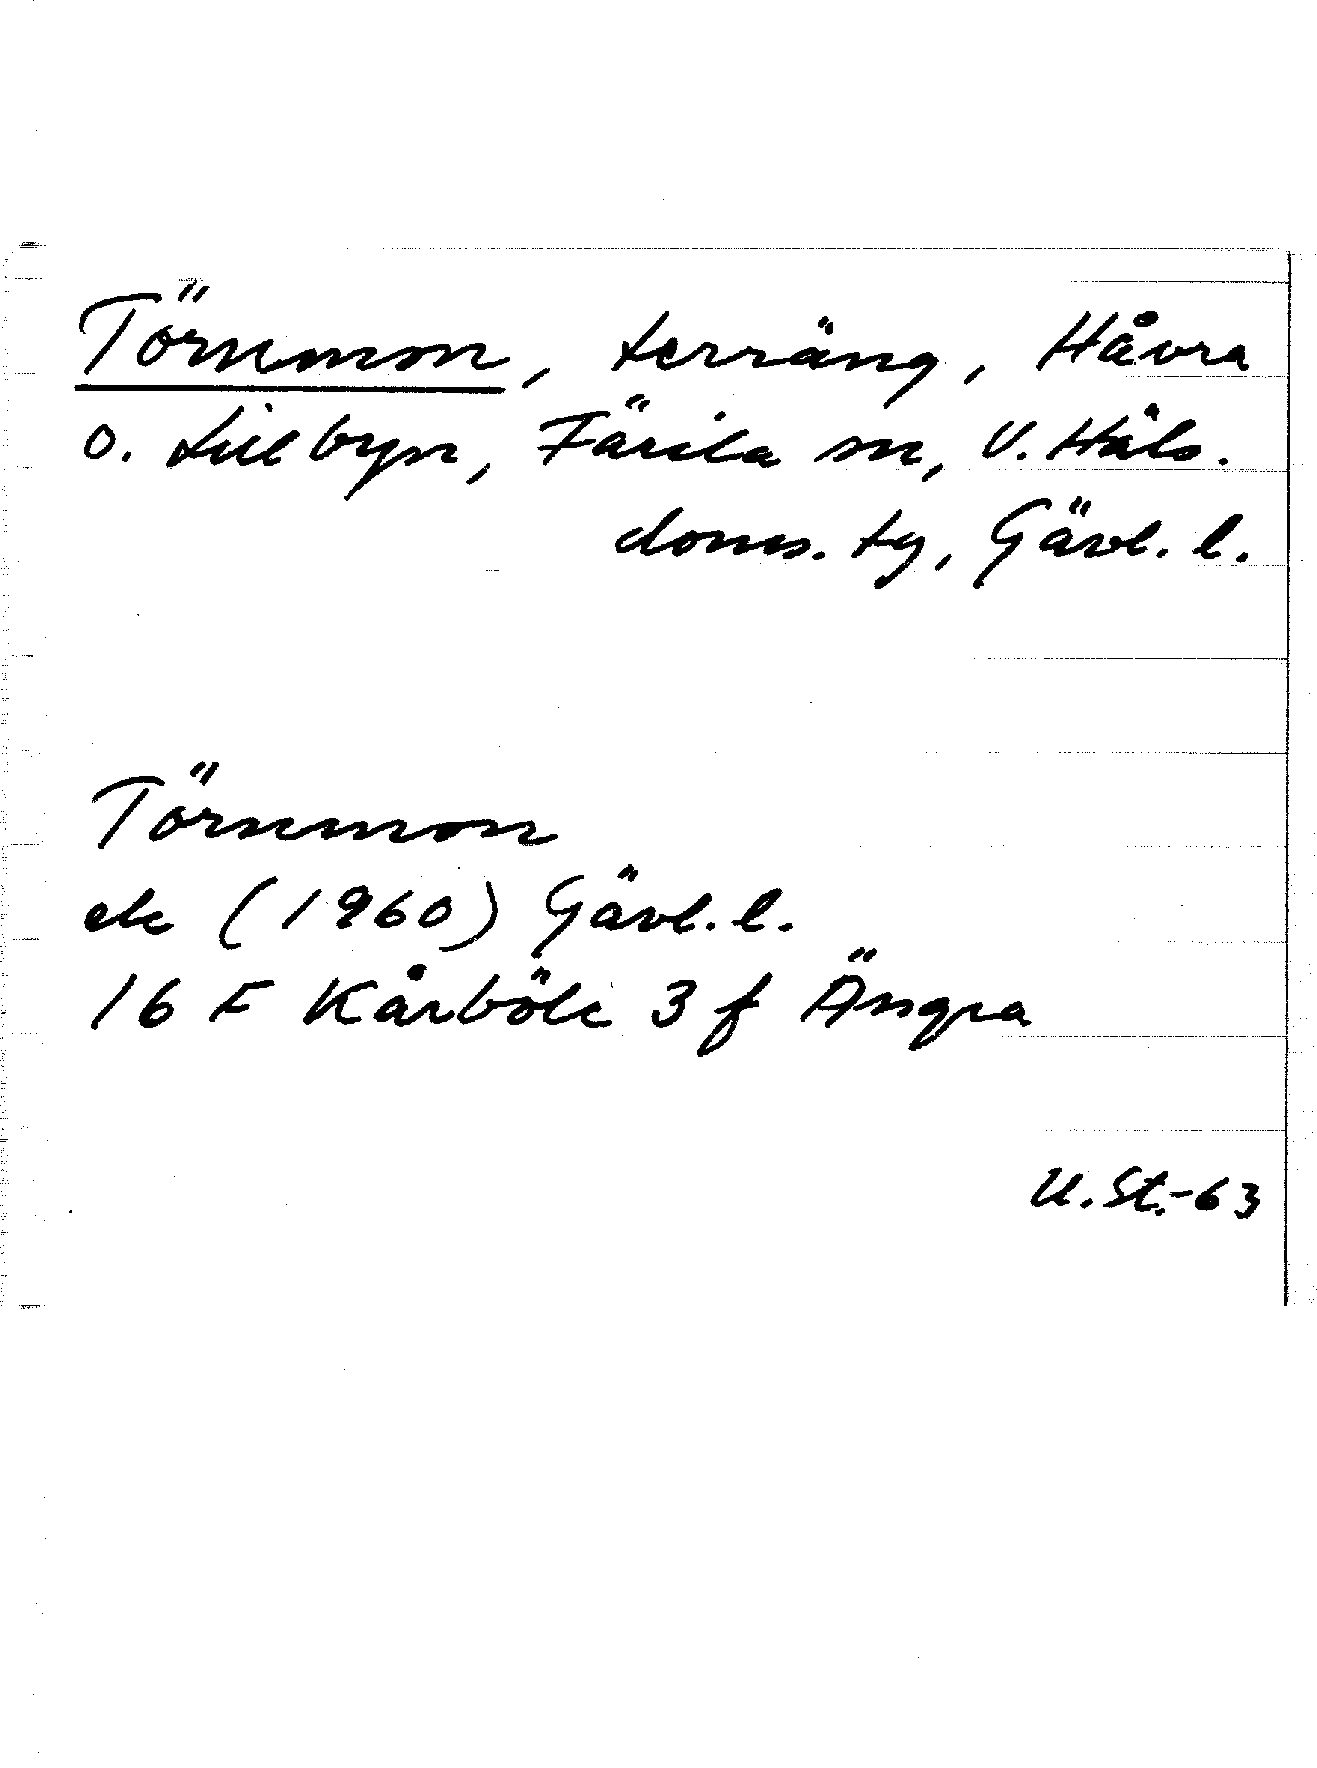 Törnmon, terräng, Håvra
o. Lillbyn, Färila sn, V. Häls.
doms. tg, Gävl. l.
Törnmon
ek (1960) Gävl. l.
16 F Kårböle 3 f Ängra
U. St.-63